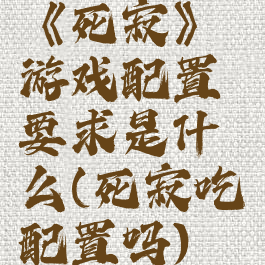 《死寂》
游戏配置
要求是什
么(死寂吃
配置吗)